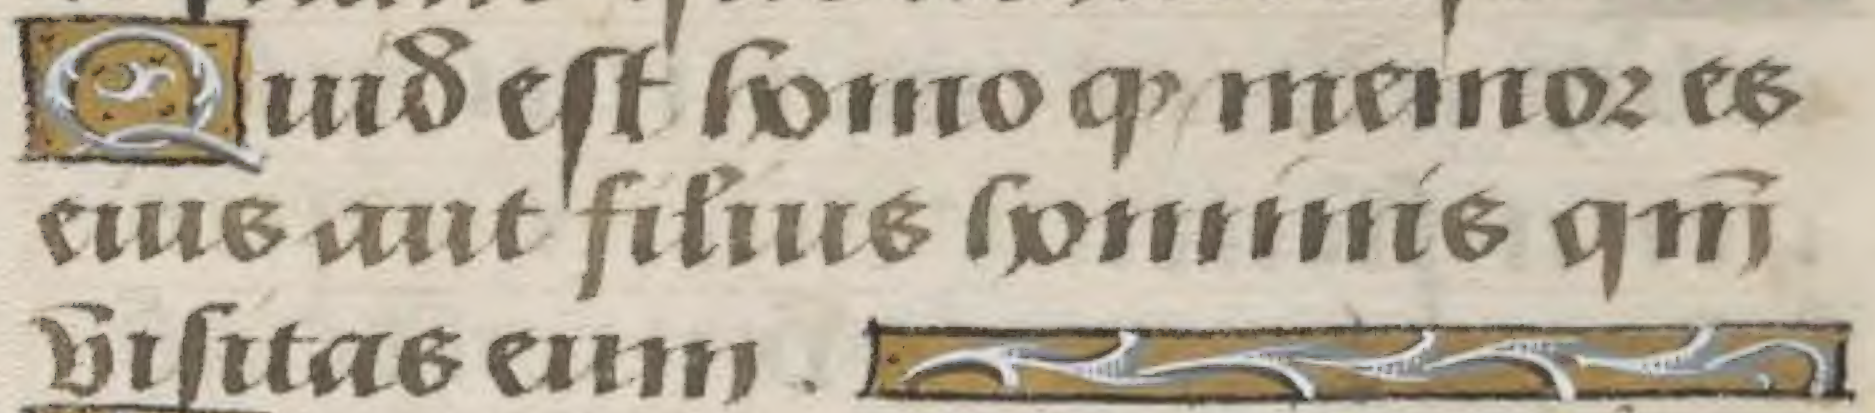 Quid est homo ꝙ memor es
eius aut filius hominis qm̄
visitas eum .